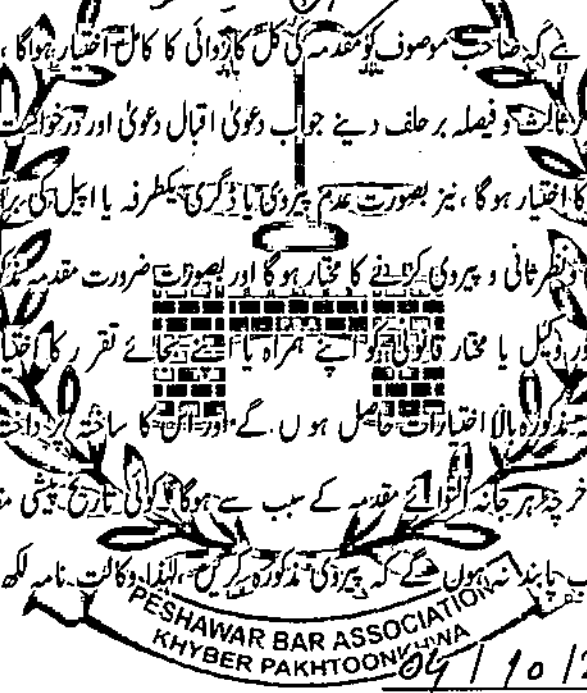 ہے کہ صاحب موصوف کو مقدمہ کی کل کاروائی کا کامل اختیار ہوگا ،
ر ثالث و فیصلہ بر حلف دینے جواب دعویٰ اقبال دعویٰ اور درخواست
کا اختیار ہو گا ، نیز بصورت عدم پیروی یا ڈگری یکطرفہ یا اپیل کی برا
و نظر ثانی و پیروی کرنے کا مختار ہو گا اور بصورت ضرورت مقدمہ مذکو
ور وکیل یا مختار قانونی کو اپنے ہمراہ یا اپنے بجائے تقرر کا اختیا
مذکورہ بالا اختیارات حاصل ہو ں گے اور اس کا ساختہ پرداخت
خرچہ ہرجانہ التوائے مقدمہ کے سبب سے ہوگا کوئی تاریخ پیشی مق
ب پابند نہ ہوں گے کہ پیروی مذکورہ کریں ،لہٰذا وکالت نامہ لکھ
PESHAWAR BAR ASSOCIATION
KHYBER PAKHTOONKHWA
04 / 10 /